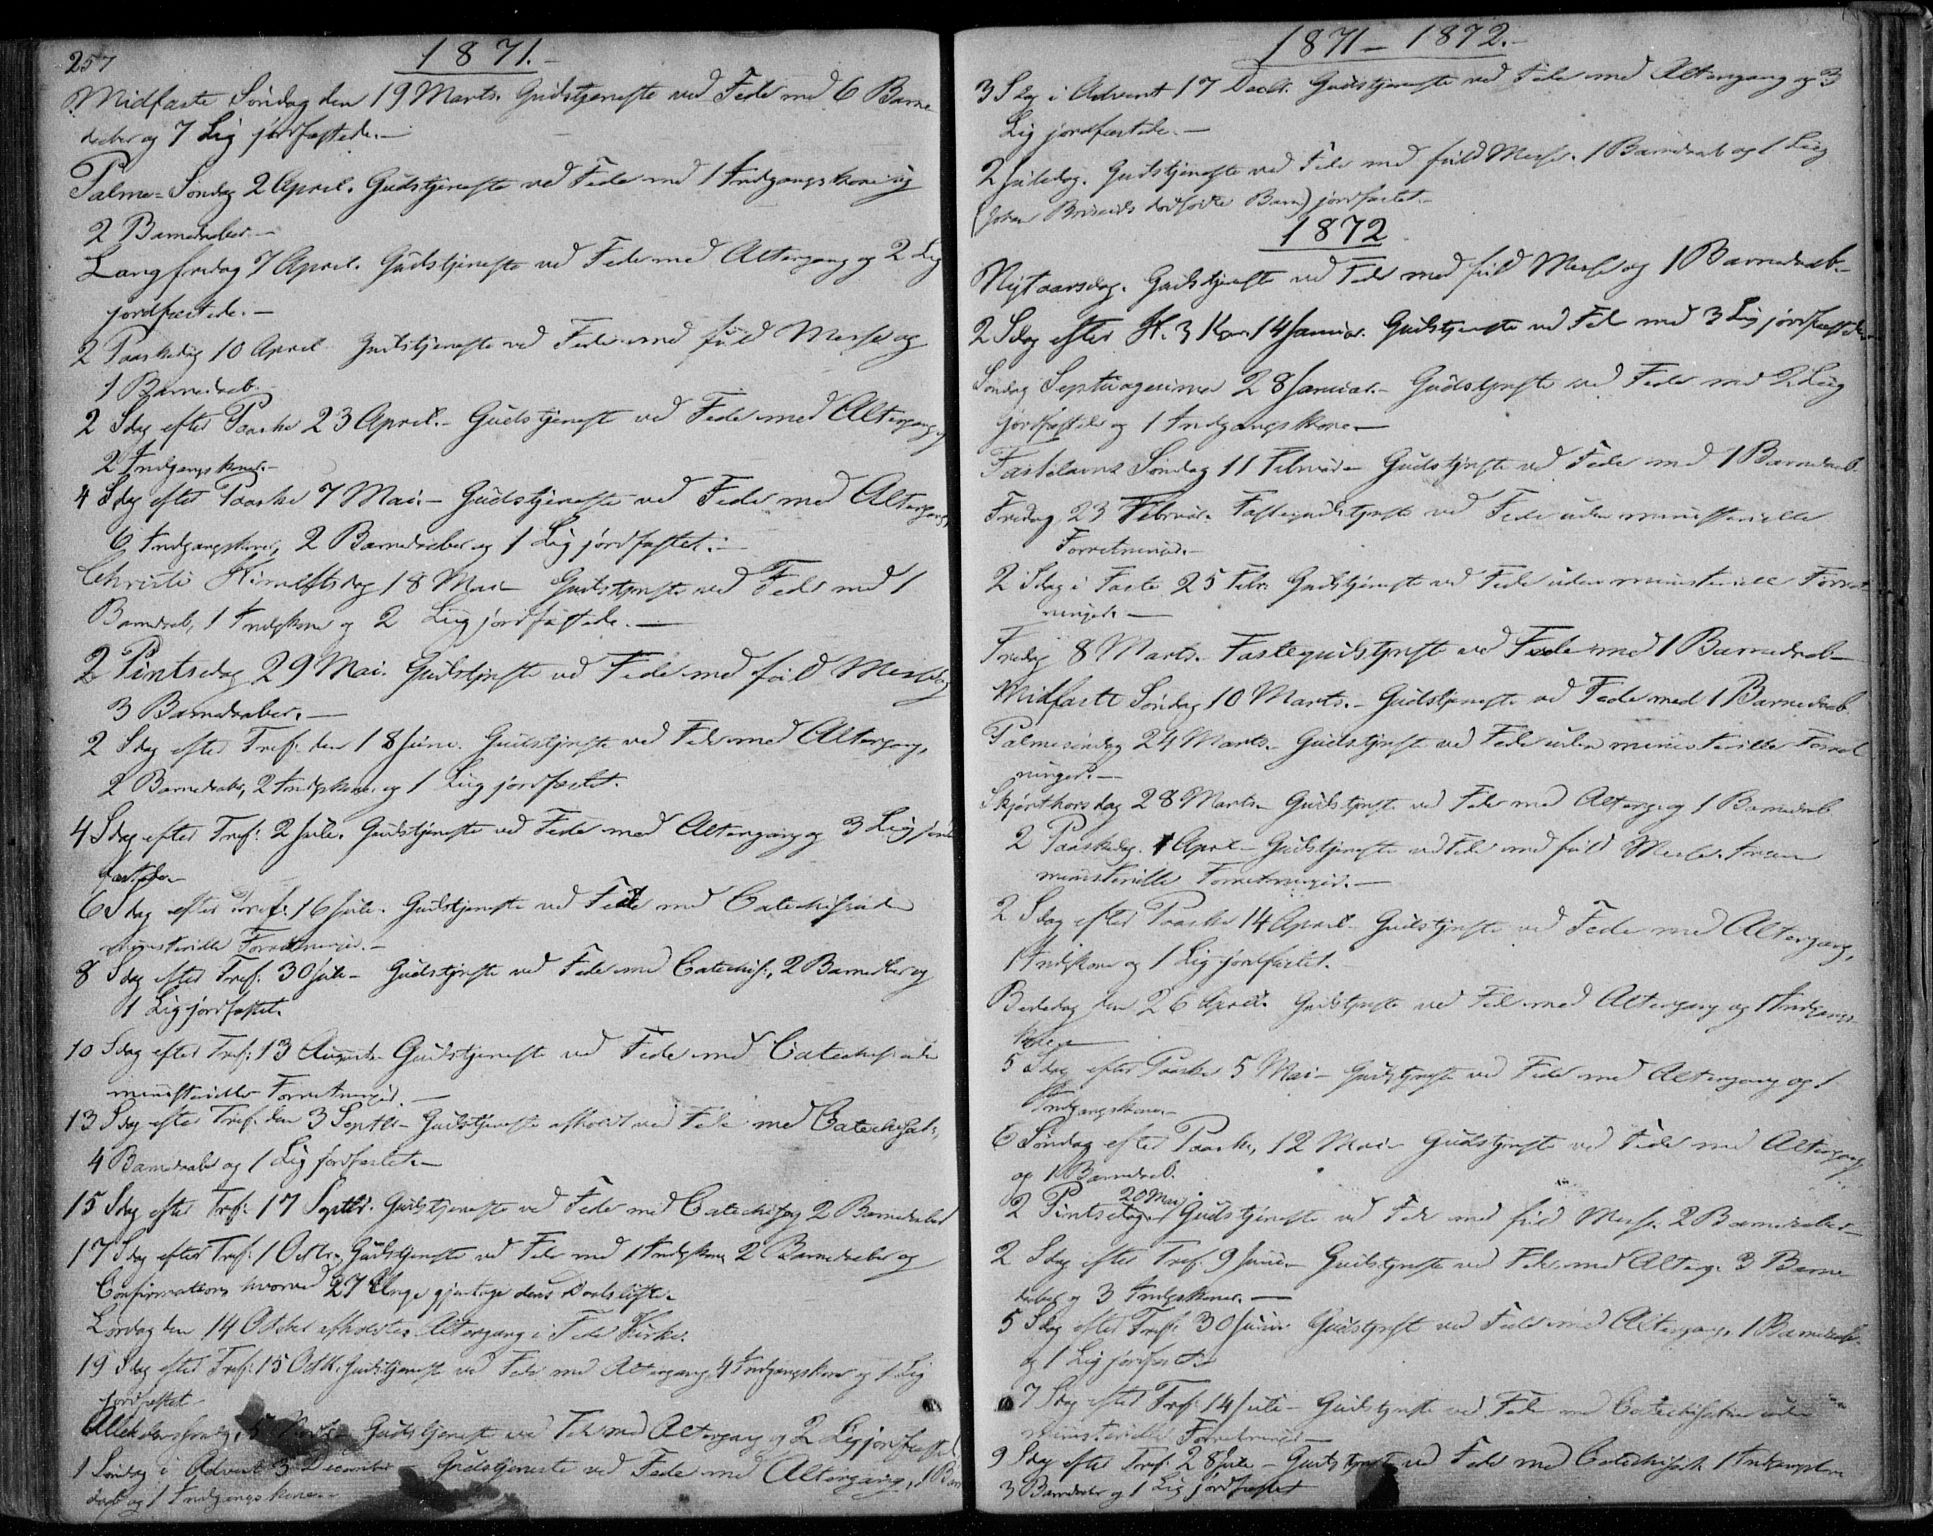 257
1871.-
Midfaste Søndag den 19 Marts. Gudstjeneste ved Fede med 6 Barne
daaber og 7 Lig jordfæstede.-
Palme-Søndag 2 April. Gudstjeneste ved Fede med 1 Indgangskone og
2 Barnedaaber.-
Langfredag 7 April. Gudstjeneste ved Fede med Altergang og 2 Lig
jordfæstede.-
2 Paaskedag 10 April. Gudstjeneste ved Fede med fuld Messe og
1 Barnedaab.
2 Sdag efter Paaske 23 April.- Gudstjeneste ved Fede med Altergang og
2 Indgangskoner.-
4 Sdag efter Paaske 7 Mai.- Gudstjeneste ved Fede med Altergang,
6 Indgangskoner, 2 Barnedaaber og 1 Lig jordfæstet.-
Christi Himelftsdag 18 Mai- Gudstjeneste ved Fede med 1
Barnedaab, 1 Indgskone og 2 Liig jordfæstede.-
2 Pintsedag 29 Mai. Gudstjeneste ved Fede med fuld Messe og
3 Barnedaaber.-
2 Sdag efter Tref. den 18 Juni. Gudstjeneste ved Fede med Altergang,
2 Barnedaaber, 2 Indgskoner og 1 Liig jordfæstet.
4 Sdag efter Tref: 2 Juli. Gudstjeneste ved Fede med Altergang og 3 Lig jord
fæstede.-
6 Sdag efter Tref: 16 Juli. Gudstjeneste ved Fede med Catechis: uden
ministerielle Forretninger.-
8 Sdag efter Tref. 30 Juli- Gudstjeneste ved Fede med Catechis:, 2 Barnedaaber og
1 Lig jordfæstet.
10 Sdag efter Tref: 13 August- Gudstjeneste ved Fede med Catechis: uden
ministerielle Forretninger.-
13 Sdag efter Tref. den 3 Septbr- Gudstjeneste afholdt ved Fede med Catechisat:,
4 Barnedaaber og 1 Lig jordfæstet.-
15 Sdag efter Tref: 17 Septbr. Gudstjeneste ved Fede med Catechis og 2 Barnedaaber
17 Sdag efter Tref: 1 Octbr. Gudstjeneste ved Fede med 1 Indgskone 2 Barnedaaber og
Confirmation hvorved 27 Unge gjentoge deres Daabsløfte.
Lørdag den 14 October afholdtes Altergang i Fede Kirke.
19 Sdag efter Tref: 15 Octb. Gudstjeneste ved Fede med Altergang, 4 Indgangskoner og 1 Lig
jordfæstet-
5 Gudstjeneste ved Fede med Altergang og 2 Lig jordfæstet
1 Søndag i Advent 3 December- Gudstjeneste ved Fede med Altergang, 1 Barne
daab og 1 Indgangskone.-
1871-1872.-
3 Sdag i Advent 17 Decbr. Gudstjeneste ved Fede med Altergang og 3
Lig jordfæstede.-
2 Juledag. Gudstjeneste ved Fede med fuld Messe. 1 Barnedaab og 1 Liig
(Johan dødfødte Barn) jordfæstet.-
1872
Nytaarsdag. Gudstjeneste ved Fede med fuld Messe og 1 Barnedaab.-
2 Sdag efter H. 3 Kon. 14 Januar. Gudstjeneste ved Fede med 3 Lig jordfæstede
Søndag Septuagesima 28 Januar.- Gudstjeneste ved Fede med 2 Liig
jordfæstede og 1 Indgangskone.-
Fastelavns Søndag 11 Februar- Gudstjeneste ved Fede med 1 Barnedaab
Fredag 23 Februar. Fastegudstjeneste ved Fede uden ministerielle
Forretninger.-
2 Sdag i Faste 25 Febr. Gudstjeneste ved Fede uden ministerielle Forret
ninger.-
Fredag 8 Marts- Fastegudstjeneste ved Fede med 1 Barnedaab-
Midfaste Søndag 10 Marts.- Gudstjeneste ved Fede med 1 Barnedaab
Palmesøndag 24 Marts- Gudstjeneste ved Fede uden ministerielle Forret
ninger.-
Skjærthorsdag 28 Marts- Gudstjeneste ved Fede med Alterg. og 1 Barnedaab
2 Paaskedag. 1 April- Gudstjeneste ved Fede med fuld Messe. Ingen
ministerielle Forretninger.-
2 Sdag efter Paaske 14 April- Gudstjeneste ved Fede med Altergang,
1 Indgskone og 1 Lig jordfæstet.
Bededag den 26 April. Gudstjeneste ved Fede med Altergang og 1 Indgangs
kone
5 Sdag efter Paaske 5 Mai- Gudstjeneste ved Fede med Altergang og 1
Indgangskone.-
6 Søndag efter Paaske, 12 Mai- Gudstjeneste ved Fede med Altergang
og 1 Barnedaab.
20 Mai
2 Pintsedag Gudstjeneste ved Fede med fuld Messe. 2 Barnedaaber-
2 Sdag efter Tref. 9 Juni- Gudstjeneste ved Fede med Alterg. 3 Barne
daaber og 3 Indgskoner.-
5 Sdag efter Tref. 30 Juni Gudstjeneste ved Fede med Altergang. 1 Barnedaab
og 1 Lig jordfæstet
7 Sdag efter Tref. 14 Juli- Gudstjeneste ved Fede med Catechisation uden
ministerielle Forretninger-
9 Sdag efter Tref. 28 Juli- Gudstjeneste ved Fede med Catechisat.
3 Barnedaaber og 1 Lig jordfæstet